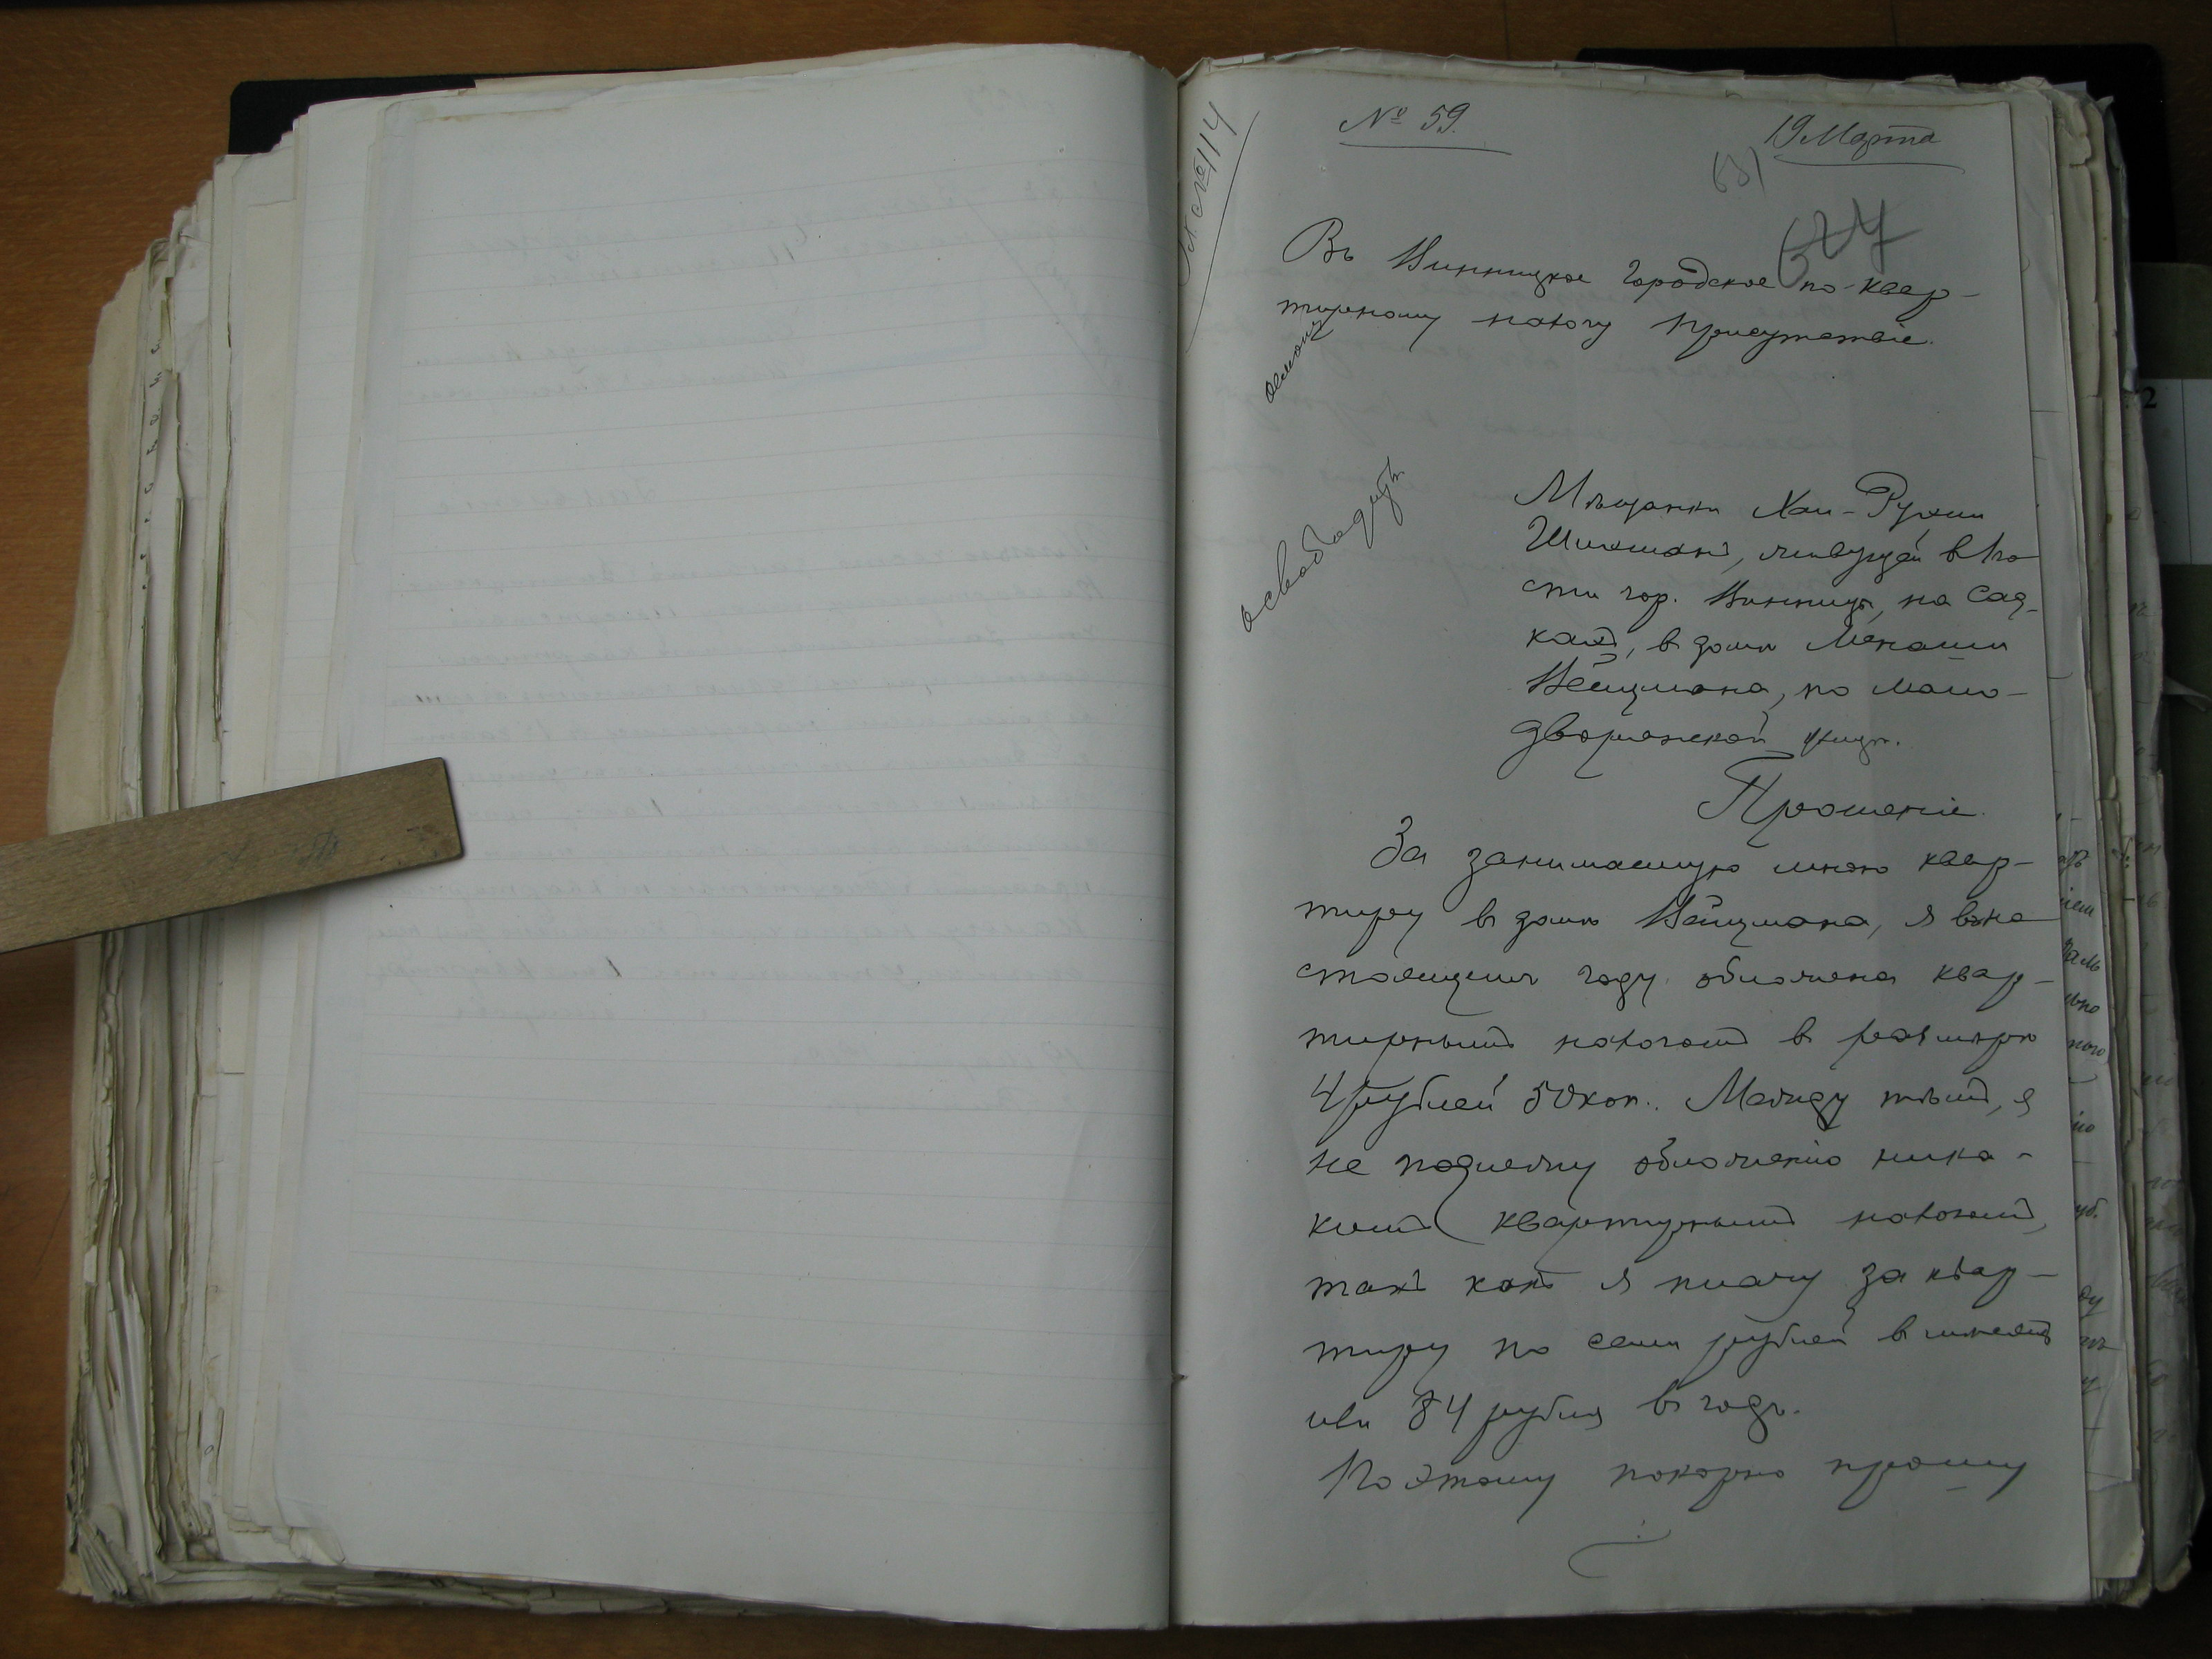 № 59.
19 Марта
№ 114
Въ Винницкое Городское по квар-
тирному налогу Присутствіе.
освободить
Мѣщанки Хаи-Рухли
Шихманъ, живущей в ча
сти гор. Винницы, на Сад-
кахъ, в домѣ Менаши
Вейцмана, по Мало-
дворянской улицѣ.
Прошеніе.
За занимаемую мною квар-
тиру в домѣ Вейцмана, я в на
стоящемъ году обложена квар-
тирнымъ налогомъ в размѣрѣ
4 рублей 50 коп. Между тѣмъ, я
не подлежу обложенію ника-
кимъ квартирнымъ налогомъ,
такъ какъ я плачу за квар-
тиру по семи рублей в мѣсяцъ
или 84 рубля въ годъ.
Поэтому покорно прошу